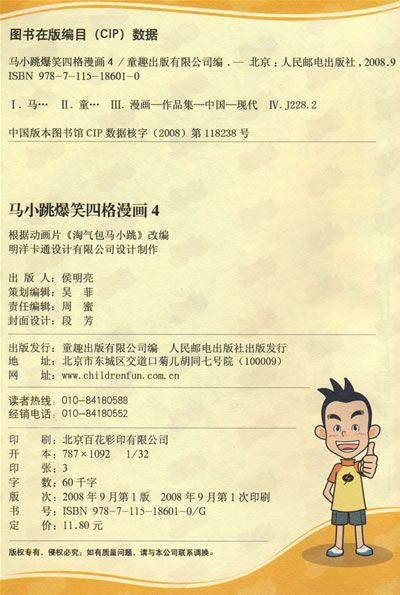 图书在版编目（CIP）数据
马小跳爆笑四格漫画 4 / 童趣出版有限公司编 .— 北京：人民邮电出版社，2008.9
ISBN 978-7-115-18601-0
Ⅰ. 马… Ⅱ. 童… Ⅲ. 漫画—作品集—中国—现代 Ⅳ. J228.2
中国版本图书馆 CIP 数据核字（2008）第 118238 号
马小跳爆笑四格漫画 4
根据动画片《淘气包马小跳》改编
明洋卡通设计有限公司设计制作
出 版 人：侯明亮
策划编辑：吴 菲
责任编辑：周 蜜
封面设计：段 芳
出版发行：童趣出版有限公司编 人民邮电出版社出版发行
地 址：北京市东城区交道口菊儿胡同七号院（100009）
网 址：www.childrenfun.com.cn
读者热线：010-84180588
经销电话：010-84180552
印 刷：北京百花彩印有限公司
开 本：787×1092 1/32
印 张：3
字 数：60 千字
版 次：2008 年 9 月第 1 版 2008 年 9 月第 1 次印刷
书 号：ISBN 978-7-115-18601-0/G
定 价：11.80 元
版权专有，侵权必究；如有质量问题，请与本公司联系调换。